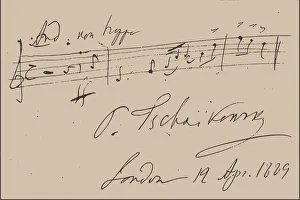 And: non troppo
P. Tschaïkovsky
London 12 Apr. 1889